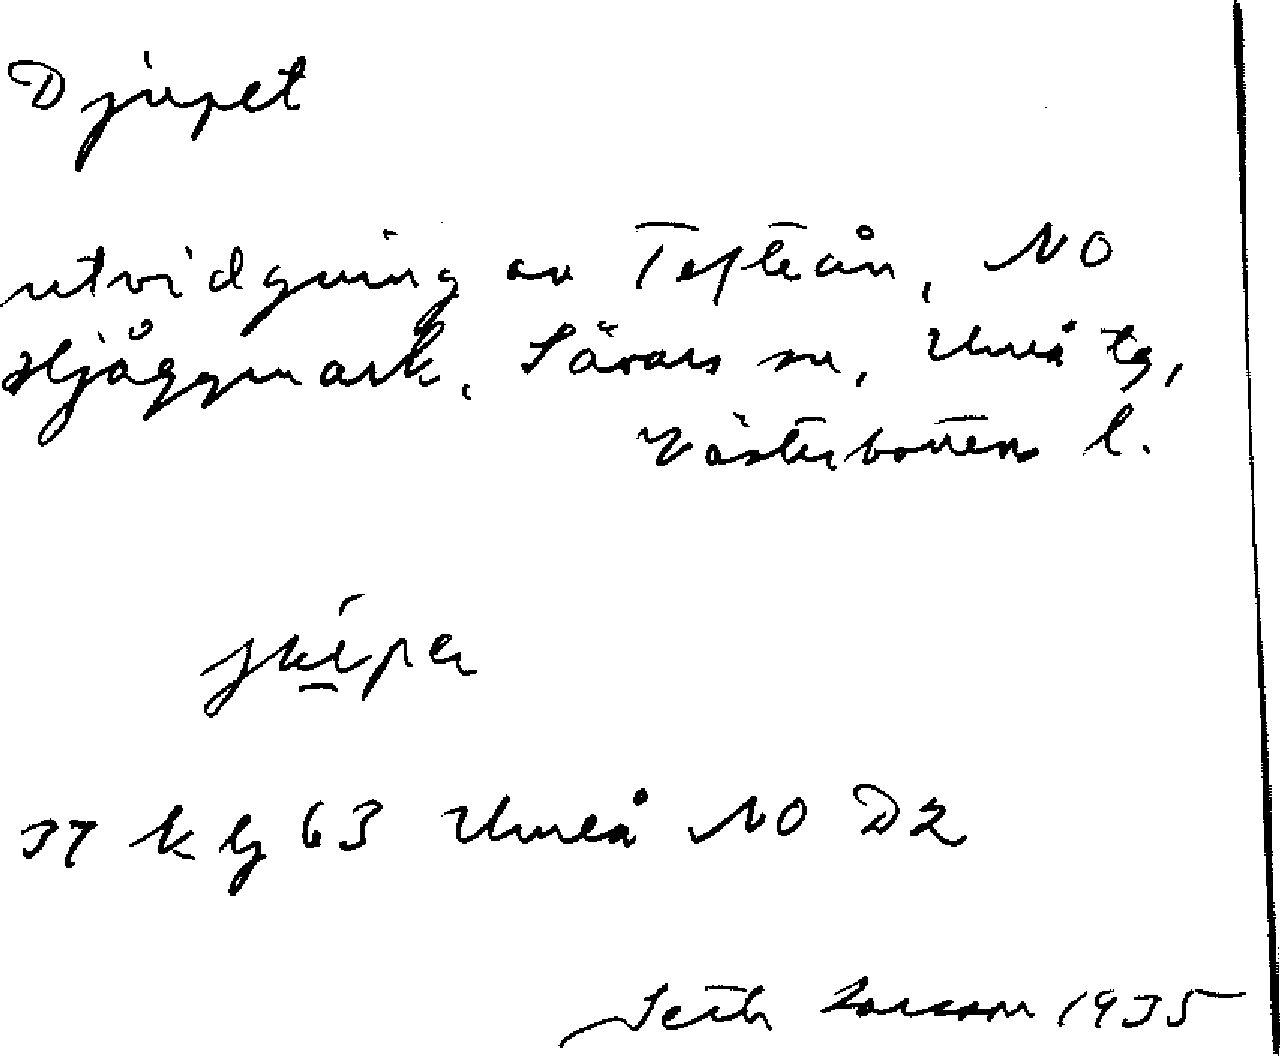 Djupet
utvidgning av Tefteån, NO
Hjåggmark, Sävars sn, Umeå tg,
Västerbottens l.
J7 k bg 63 Umeå NO D2
Seth Larsson 1935